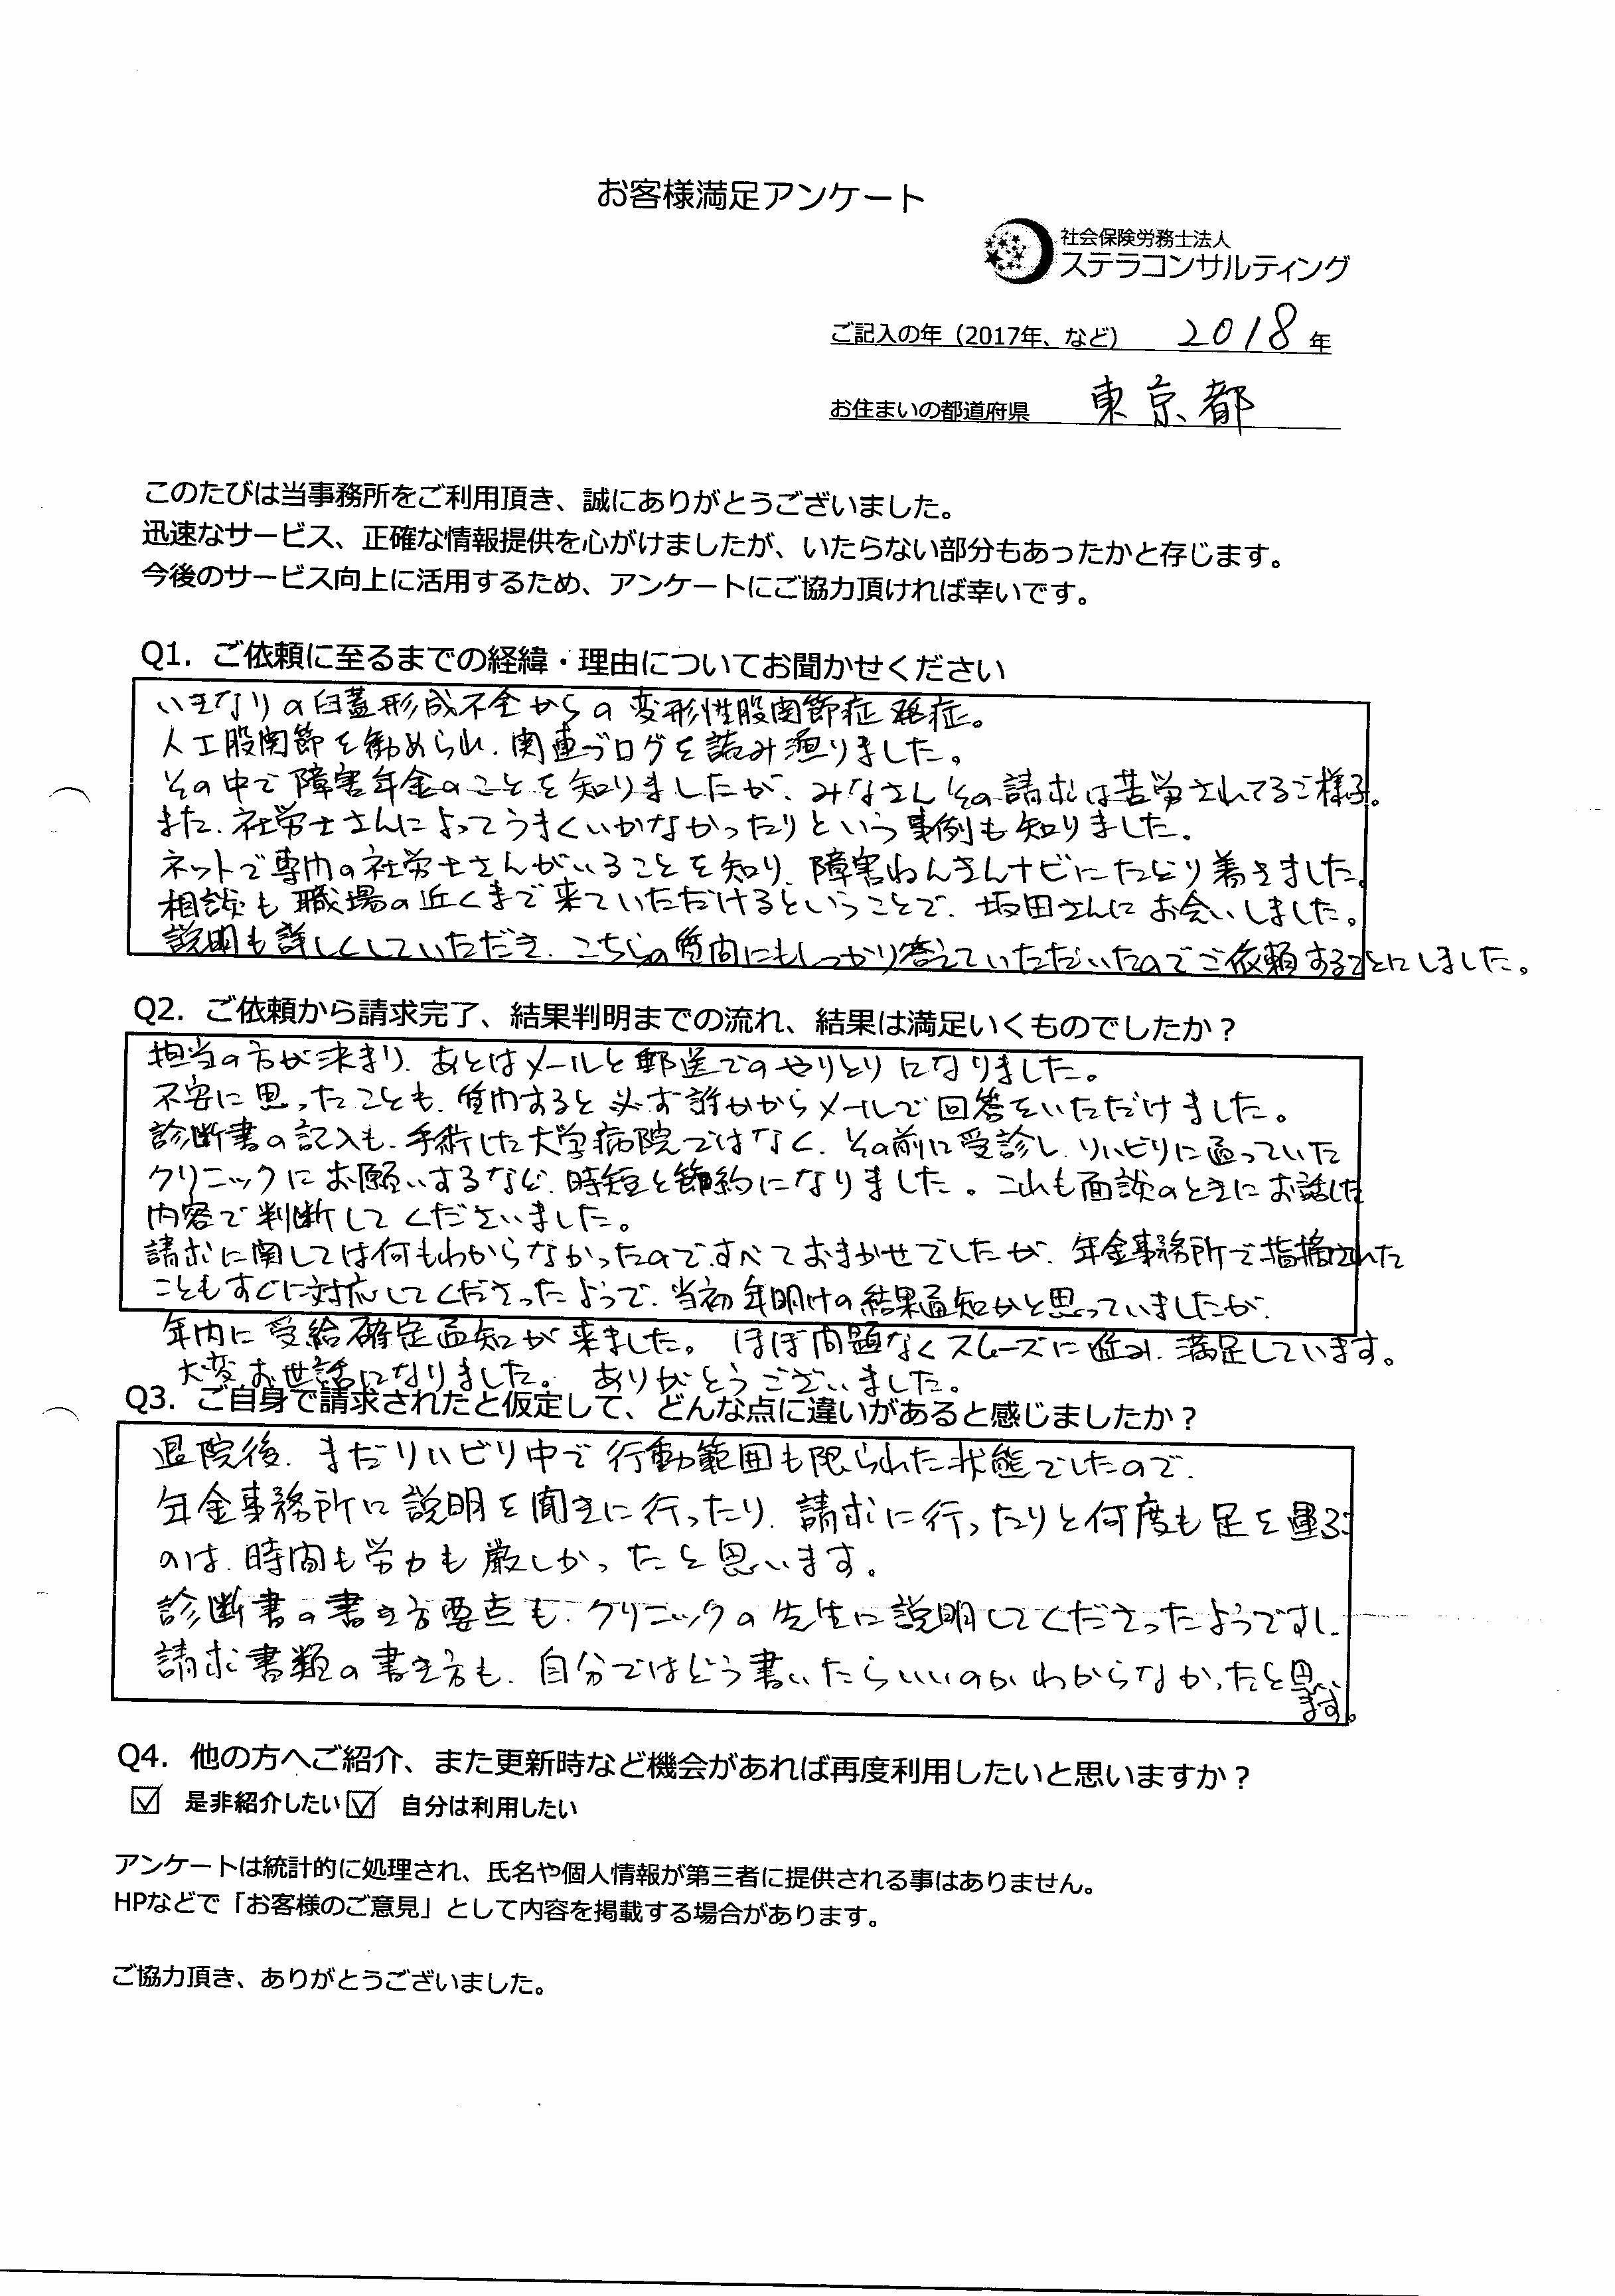 お客様満足アンケート
社会保険労務士法人
ステラコンサルティング
ご記入の年（2017年、など） 2018 年
お住まいの都道府県 東京都
このたびは当事務所をご利用頂き、誠にありがとうございました。
迅速なサービス、正確な情報提供を心がけましたが、いたらない部分もあったかと存じます。
今後のサービス向上に活用するため、アンケートにご協力頂ければ幸いです。
Q1. ご依頼に至るまでの経緯・理由についてお聞かせください
いきなりの臼蓋形成不全からの変形性股関節症発症。
人工股関節を勧められ、関連ブログを読み漁りました。
その中で障害年金のことを知りましたが、みなさんその請求は苦労されてるご様子。
また、社労士さんによってうまくいかなかったりという事例も知りました。
ネットで専門の社労士さんがいることを知り、障害ねんきんナビにたどり着きました。
相談も職場の近くまで来ていただけるということで、坂田さんにお会いしました。
説明も詳しくしていただき、こちらの質問にもしっかり答えていただいたのでご依頼することにしました。
Q2. ご依頼から請求完了、結果判明までの流れ、結果は満足いくものでしたか？
担当の方が決まり、あとはメールと郵送でのやりとりになりました。
不安に思ったことも、質問すると必ず誰かからメールで回答をいただけました。
診断書の記入も、手術した大学病院ではなく、その前に受診し、リハビリに通っていた
クリニックにお願いするなど、時短と節約になりました。これも面談のときにお話した
内容で判断してくださいました。
請求に関しては何もわからなかったので、すべておまかせでしたが、年金事務所で指摘された
こともすぐに対応してくださったようで、当初年明けの結果通知かと思っていましたが、
年内に受給確定通知が来ました。ほぼ問題なくスムーズに進み、満足しています。
大変お世話になりました。ありがとうございました。
Q3. ご自身で請求されたと仮定して、どんな点に違いがあると感じましたか？
退院後、まだリハビリ中で行動範囲も限られた状態でしたので、
年金事務所に説明を聞きに行ったり、請求に行ったりと何度も足を運ぶ
のは、時間も労力も厳しかったと思います。
診断書の書き方要点も、クリニックの先生に説明してくださったようですし、
請求書類の書き方も、自分ではどう書いたらいいのかわからなかったと思い
ます。
Q4. 他の方へご紹介、また更新時など機会があれば再度利用したいと思いますか？
☑ 是非紹介したい ☑ 自分は利用したい
アンケートは統計的に処理され、氏名や個人情報が第三者に提供される事はありません。
HPなどで「お客様のご意見」として内容を掲載する場合があります。
ご協力頂き、ありがとうございました。